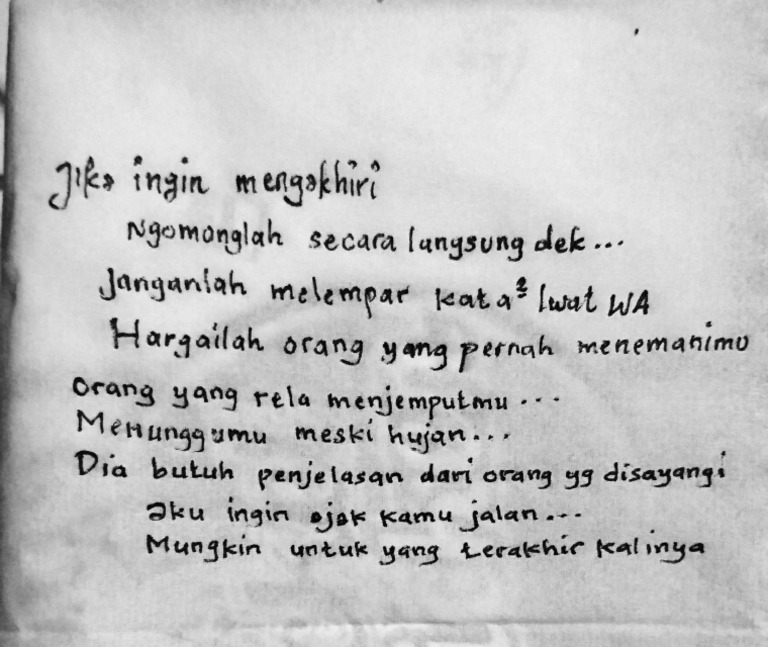 Jika ingin mengakhiri
Ngomonglah secara langsung dek...
Janganlah melempar kata² lwat WA
Hargailah orang yang pernah menemanimu
Orang yang rela menjemputmu...
Menunggumu meski hujan...
Dia butuh penjelasan dari orang yg disayangi
aku ingin ajak kamu jalan...
Mungkin untuk yang terakhir kalinya